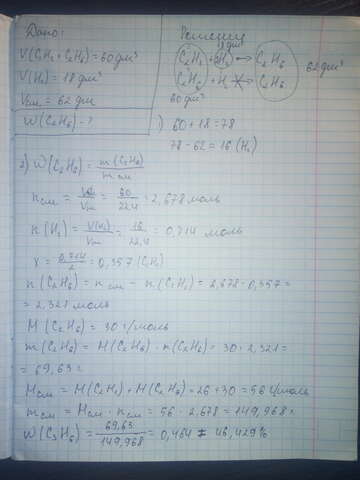 Дано:
V(C₂H₂ + C₂H₆) = 60 дм³
V(H₂) = 18 дм³
Vсм = 62 дм
W(C₂H₆) - ?
Решение
18 дм³
C₂H₂ + H₂ ↔ C₂H₆
62 дм³
C₂H₆ + H₂ ↛ C₂H₆
60 дм³
1) 60 + 18 = 78
78 - 62 = 16 (H₂)
2) W(C₂H₆) = m(C₂H₆) / mсм
nсм = V / Vm = 60 / 22,4 = 2,678 моль
n(H₂) = V(H₂) / Vm = 16 / 22,4 = 0,714 моль
x = 0,714 / 2 = 0,357 (C₂H₂)
n(C₂H₆) = nсм - n(C₂H₂) = 2,678 - 0,357 =
= 2,321 моль
M(C₂H₆) = 30 г/моль
m(C₂H₆) = M(C₂H₆) · n(C₂H₆) = 30 · 2,321 =
= 69,63 г
Mсм = M(C₂H₂) + M(C₂H₆) = 26 + 30 = 56 г/моль
mсм = Mсм · nсм = 56 · 2,678 = 149,968 г
W(C₂H₆) = 69,63 / 149,968 = 0,464 = 46,429%